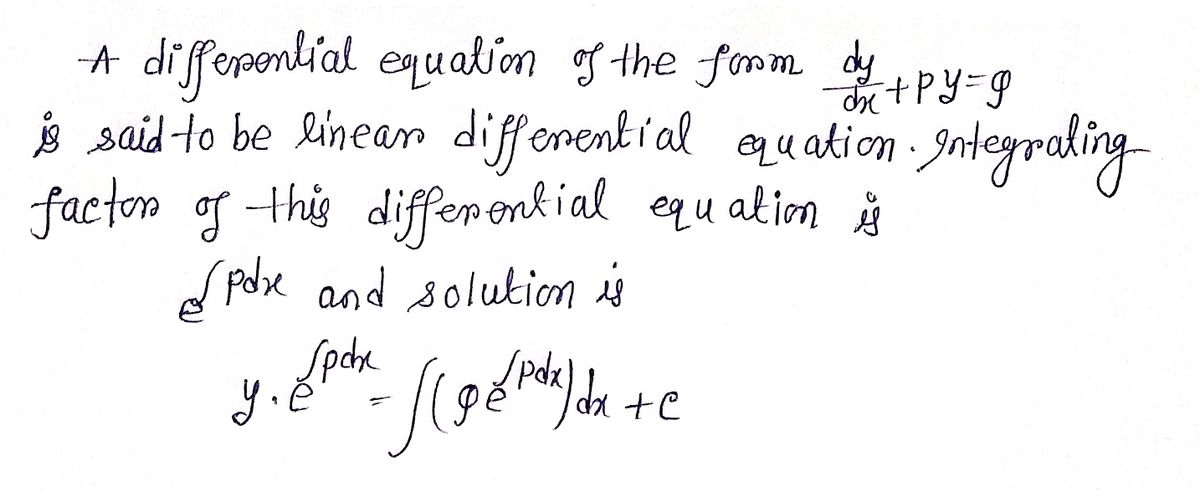 A differential equation of the form dy/dx + Py = Q
is said to be linear differential equation. Integrating
factor of this differential equation is
e^∫Pdx and solution is
y.e^∫pdx = ∫(Qe^∫Pdx)dx + c